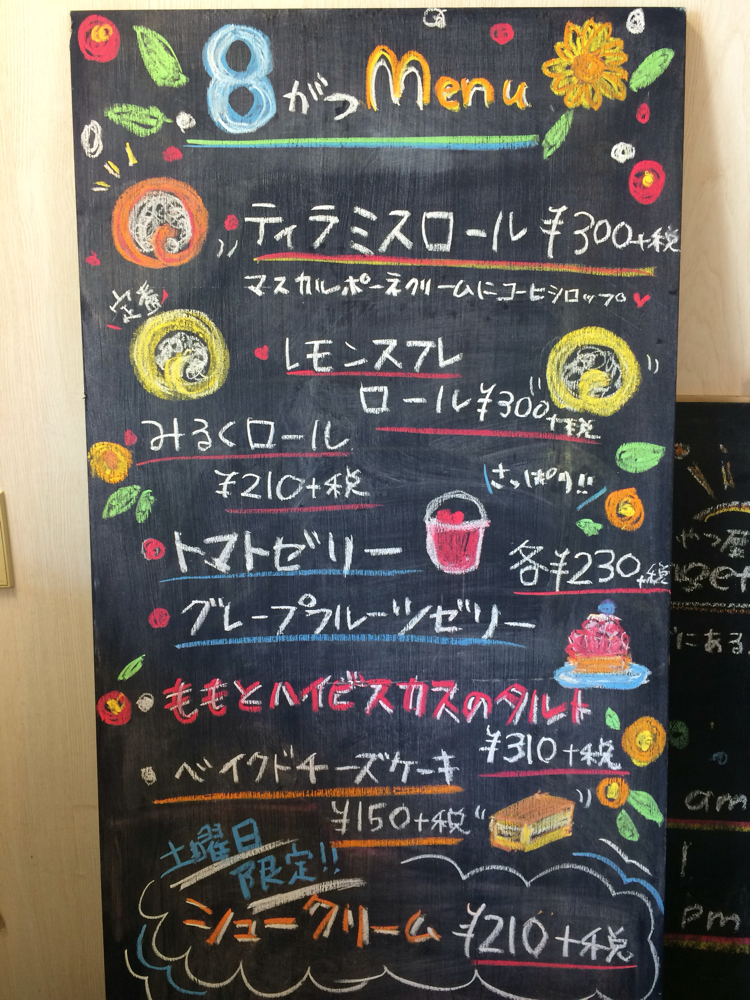 8がつMenu
ティラミスロール ¥300+税
マスカルポーネクリームにコーヒーシロップ
定番
レモンスフレ
ロール ¥300+税
みるくロール
¥210+税
さっぱり!!
トマトゼリー
各¥230+税
グレープフルーツゼリー
ももとハイビスカスのタルト
¥310+税
ベイクドチーズケーキ
¥150+税
土曜日
限定!!
シュークリーム ¥210+税
やつ屋
にある
am
pm